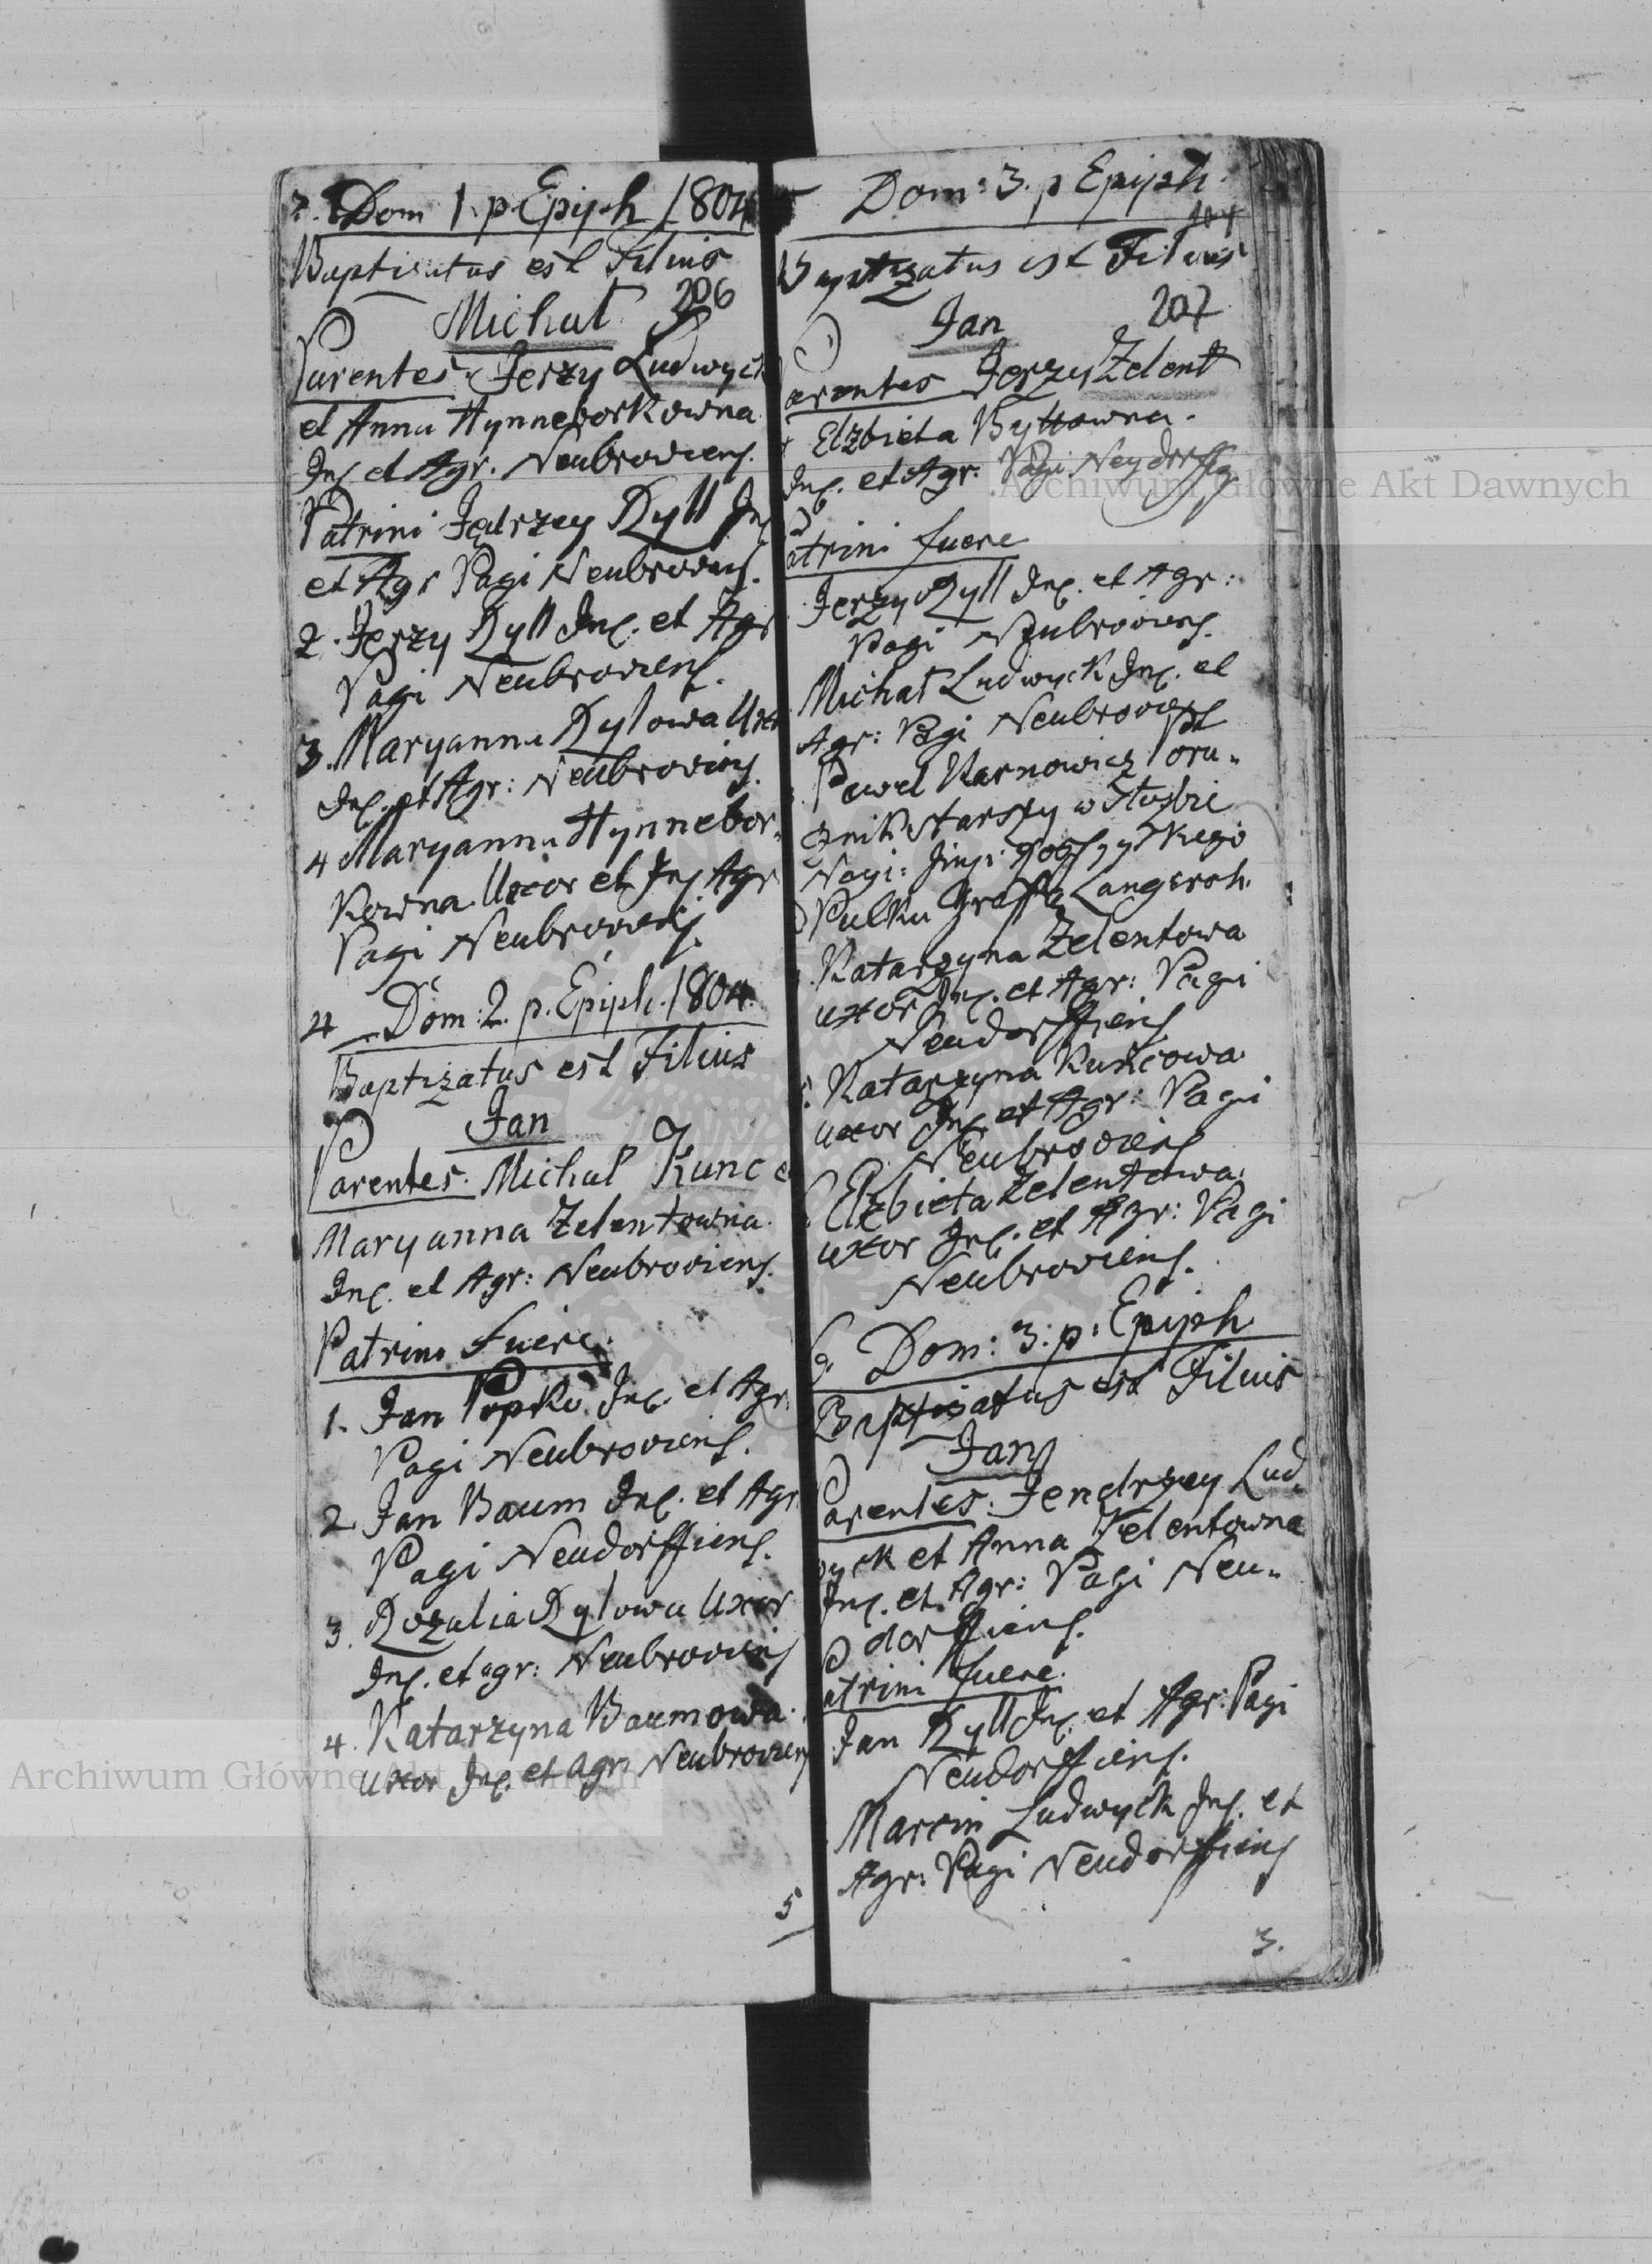 Dom 1. p. Epiph 1804
Baptisatus est Filius
Michał 206
Parentes Jerzy Ludwyck
et Anna Hynneborkowna
Inq. et Agr. Neubroviens.
Patrini Jędrzey Ryll Inq
et Agr Pagi Neubroviens.
2. Jerzy Ryll Inq. et Agr
Pagi Neubroviens.
3. Maryanna Rylowa Uxor
Inq. et Agr: Neubroviens.
4 Maryanna Hynnebor-
kowna Uxor et Inq Agr
Pagi Neubroviens.
4 Dom: 2. p. Epiph. 1804.
Baptizatus est Filius
Jan
Parentes. Michał Kunc et
Maryanna Zelentowna.
Inq. et Agr: Neubroviens.
Patrini fuere.
1. Jan Popko Inq. et Agr.
Pagi Neubroviens.
2 Jan Baum Inq. et Agr.
Pagi Neudorffiens.
3. Rozalia Rylowa Uxor
Inq. et agr: Neubroviens
4. Katarzyna Baumowa.
uxor Inq. et agr: Neubroviens
5
Dom: 3. p Epiph.
Baptizatus est Filius
Jan 207
Parentes Jerzy Zelent
Elzbieta Byttowna.
Inq. et Agr. Pagi
Patrini fuere
Jerzy Ryll Inq. et Agr:
Pagi Neubroviens.
Michał Ludwyck Inq. et
Agr: Pagi Neubroviens
Paweł Karnowicz Poru-
cznik starszy w Służbie
Pułku Graffa Langeroh.
Katarzyna Zelentowa
uxor Inq. et Agr: Pagi
Neudorffiens
Katarzyna Kuncowa
uxor Inq. et Agr: Pagi
Neubroviens
Elzbieta Zelentowa.
uxor Inq. et Agr: Pagi
Neubroviens.
6. Dom: 3. p. Epiph.
Baptisatus est Filius
Jan
Parentes. Jendrzey Lud-
wyck et Anna Zelentowna
Inq. et Agr: Pagi Neu-
dorffiens.
Patrini fuere.
Jan Ryll Inq. et Agr: Pagi
Neudorffiens.
Marcin Ludwyck Inq. et
Agr: Pagi Neudorffiens
3.
Archiwum Główne Akt Dawnych
Archiwum Główne Akt Dawnych